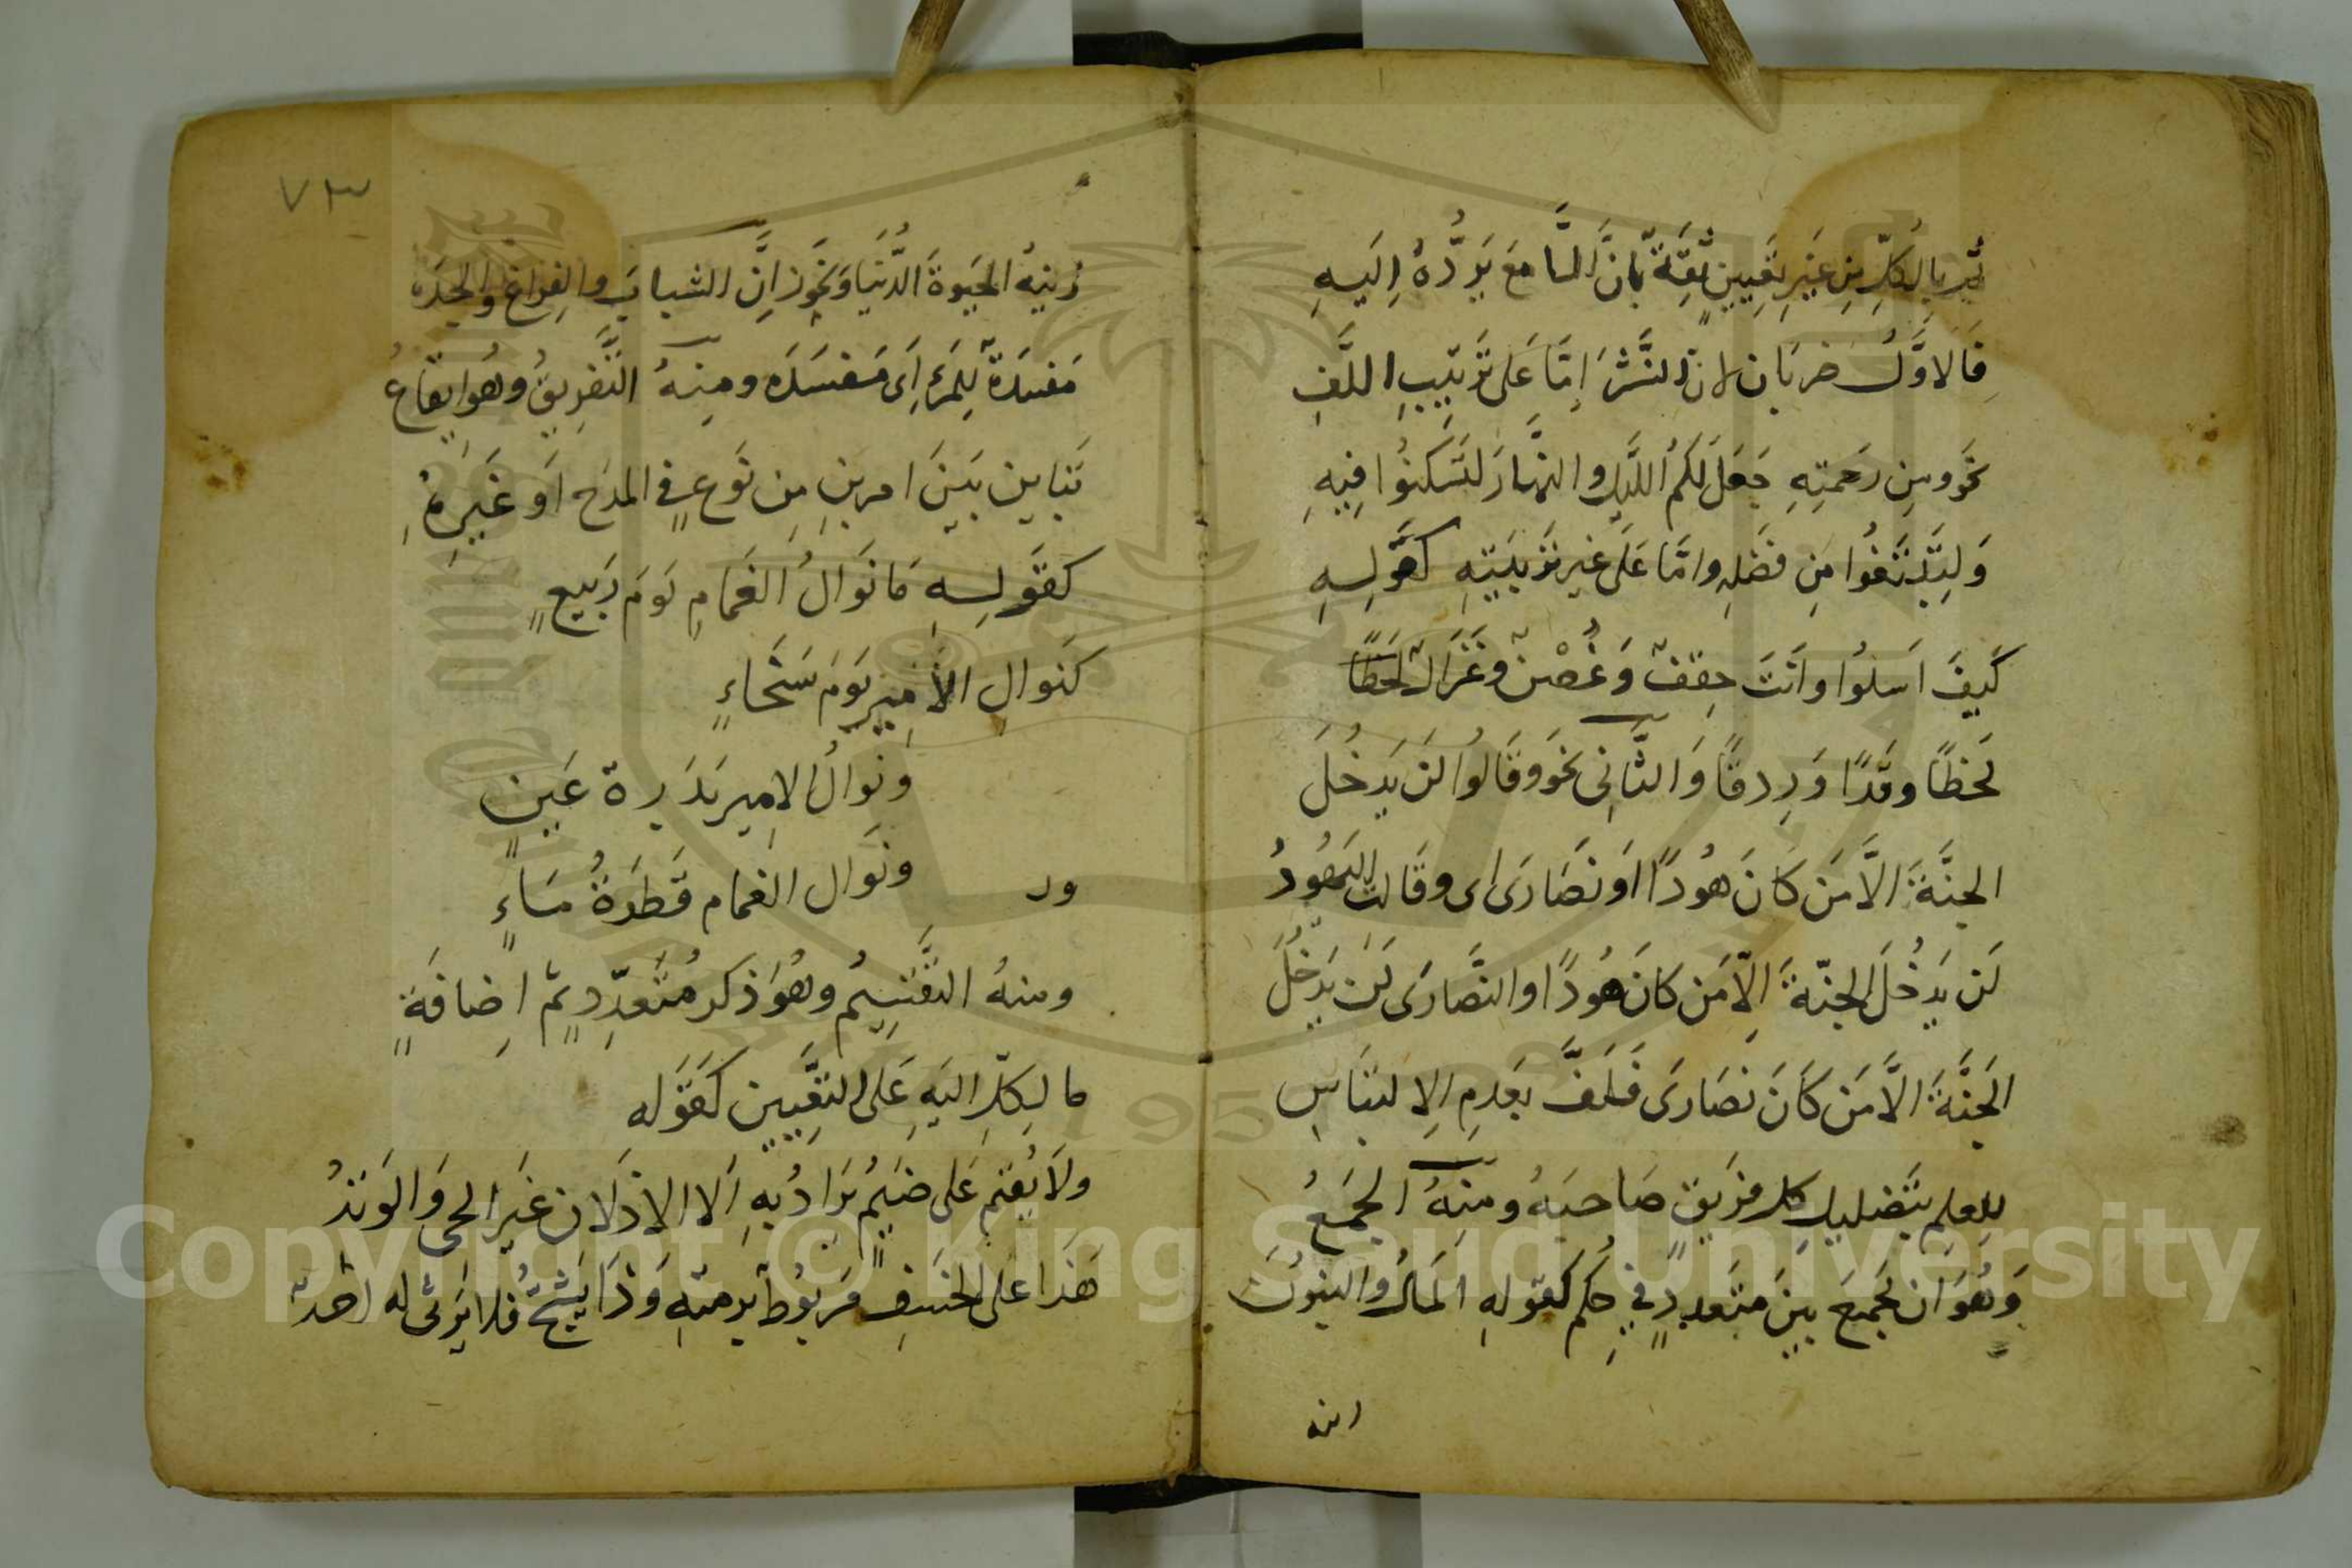 ثم بالكلّ من غير تعيين ثقةً بانّ السامع يردّه اليه
فالاوّل ضربان لان النشر امّا على ترتيب اللف
نحو ومن رحمته جعل لكم الليل والنهار لتسكنوا فيه
ولتبتغوا من فضله وامّا على غير ترتيبه كقوله
كيف اسلوا وانت حقف وغصن وغزال لحظًا
لحظًا وقدًا وردفًا والثاني نحو وقالوا لن يدخل
الجنّة الّا من كان هودًا او نصارى اى وقالت اليهود
لن يدخل الجنّة الّا من كان هودًا والنصارى لن يدخل
الجنّة الّا من كان نصارى فلفّ بعدم الالتباس
للعلم بتضليل كل فريق صاحبه ومنه الجمع
وهو ان يجمع بين متعددٍ في حكم كقوله المال والبنون
زينة الحيوة الدّنيا ونحو انّ الشباب والفراغ والجده
مفسدة للمرء اى مفسده ومنه التّفريق وهو ايقاع
تباين بين امرين من نوعٍ في المدح او غيره
كقوله ما نوال الغمام يوم ربيعٍ
كنوال الامير يوم سخاءٍ
ونوال الامير بدرة عينٍ
ونوال الغمام قطرة ماءٍ
ومنه التّقسيم وهو ذكر متعدّدٍ ثم اضافة
ما لكلّ اليه على التعيين كقوله
ولا يقيم على ضيم يراد به الا الاذلان غير الحى والوتد
هذا على الخسف مربوط برمته وذا يشج فلا يرثى له احد
زينه
٧٣
Copyright © King Saud University